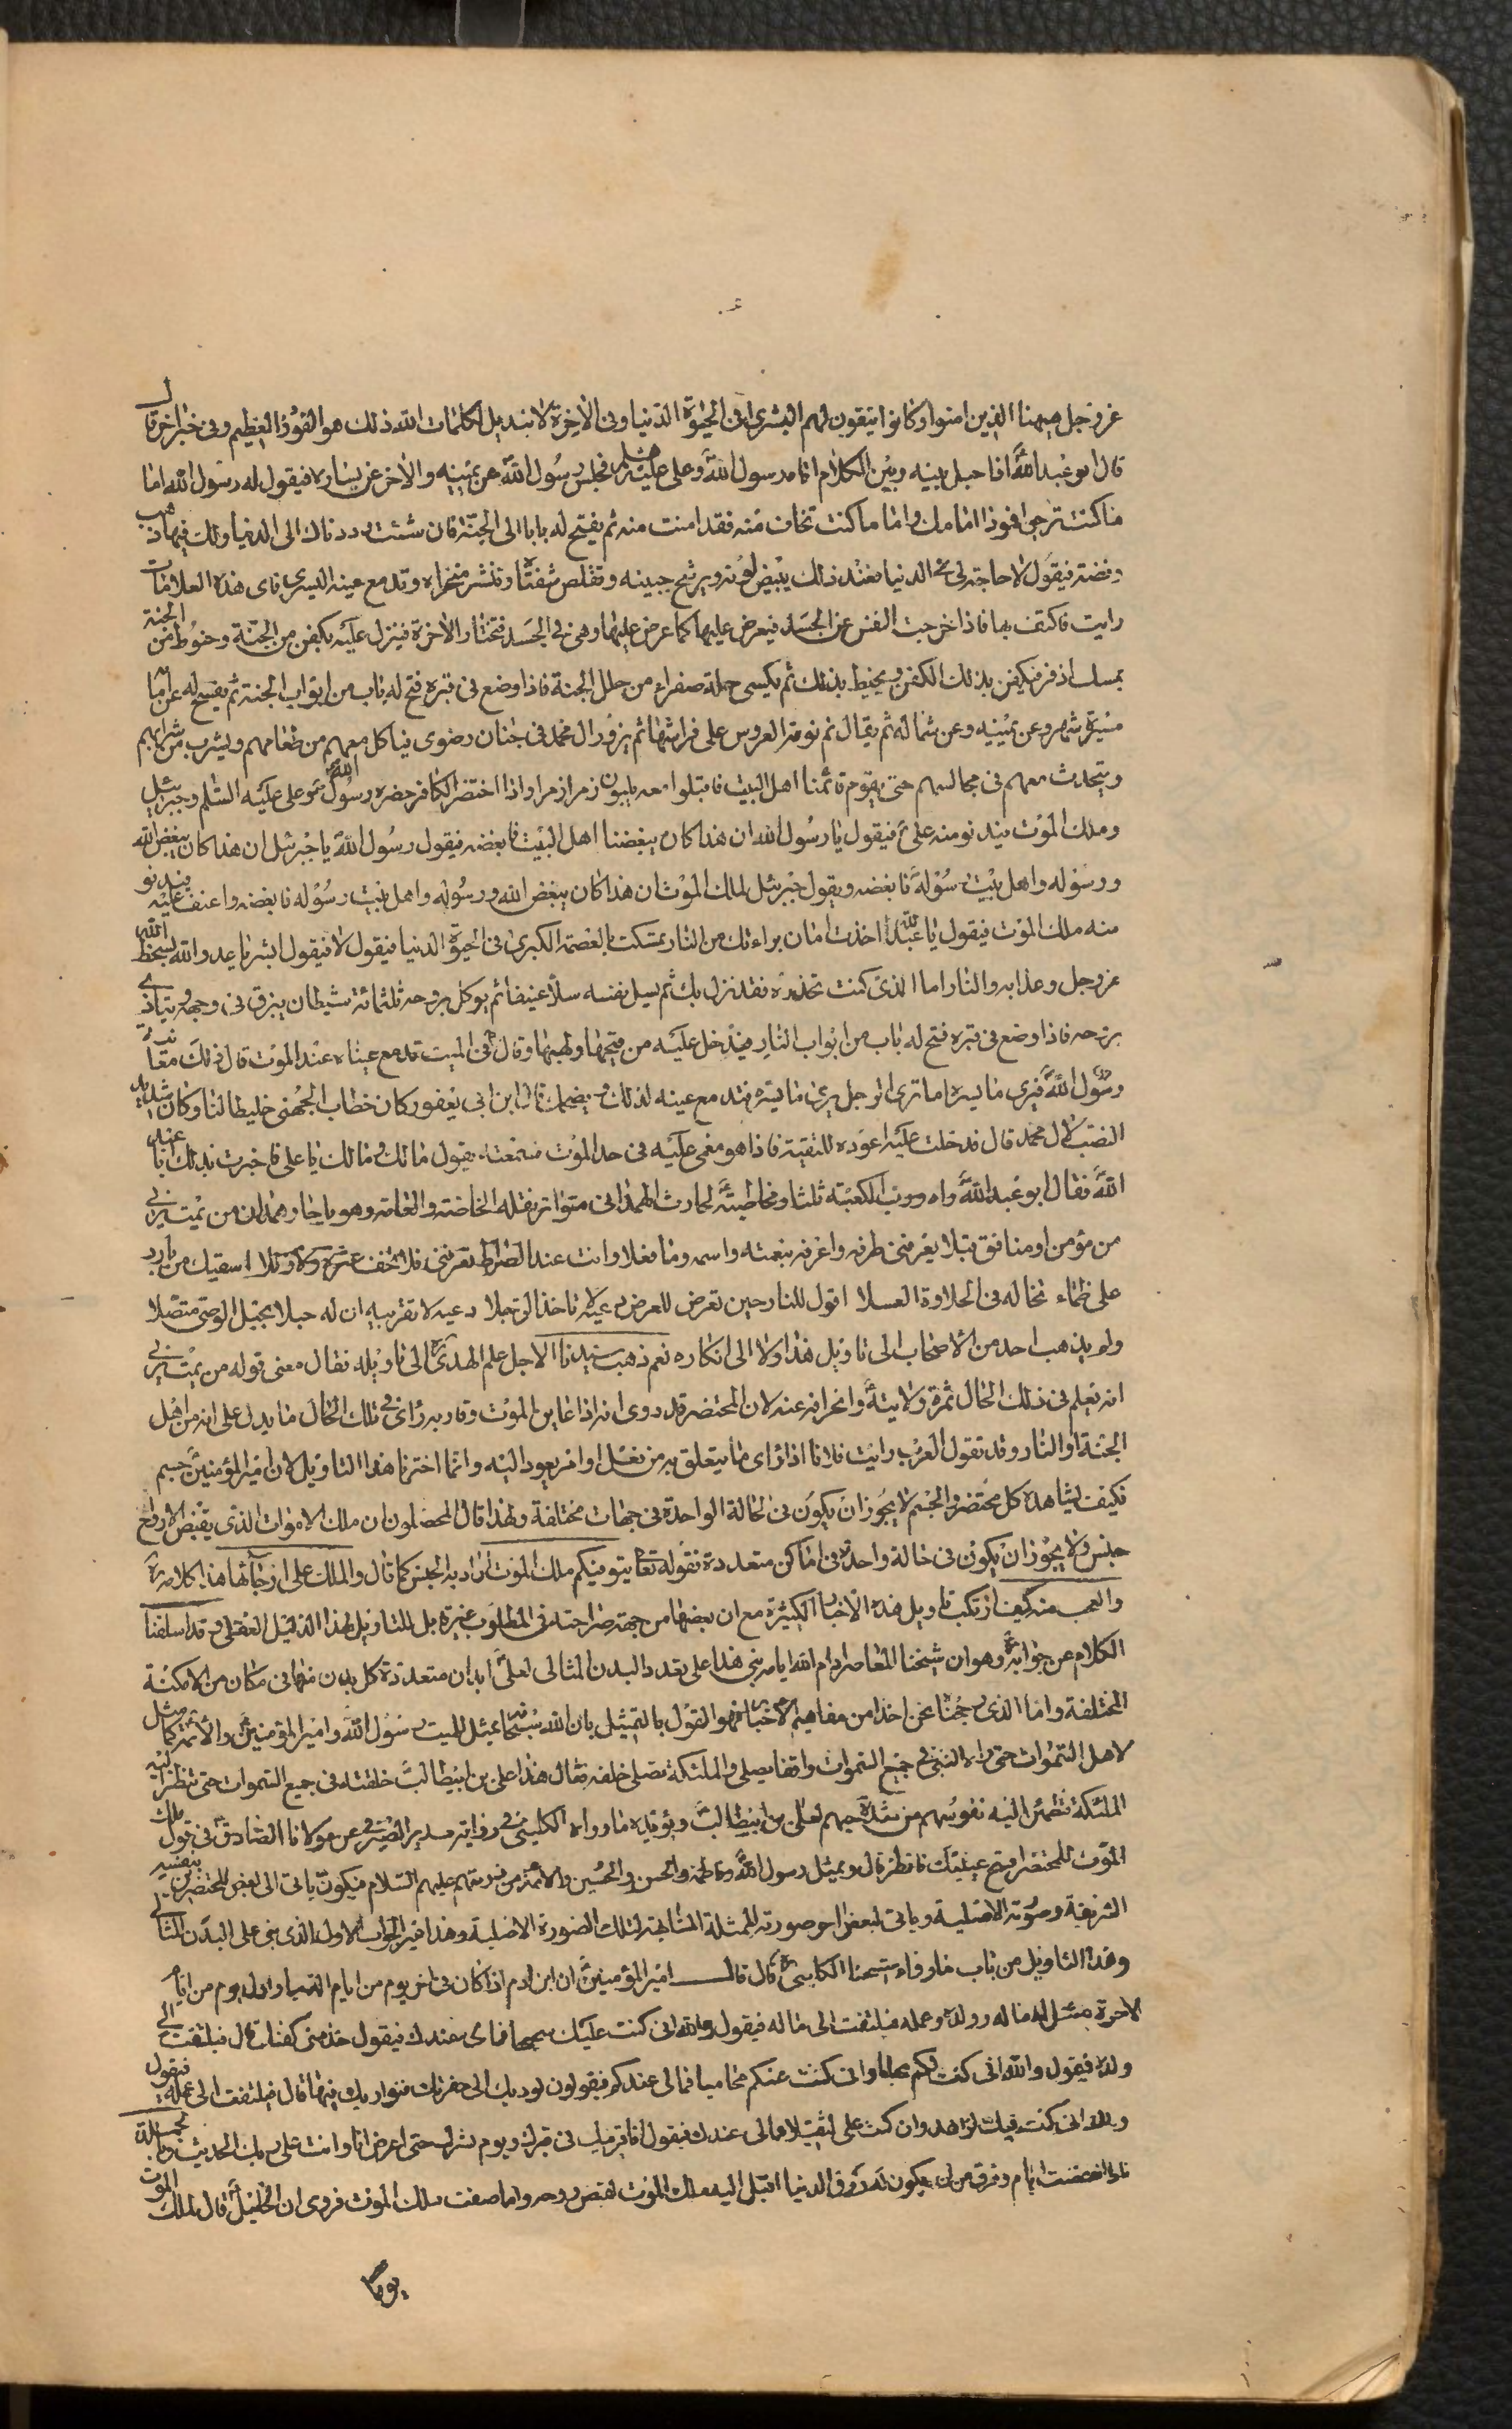 عز وجل ههنا الذين امنوا وكانوا يتقون لهم البشرى فى الحيوة الدنيا وفى الاخرة لا تبديل لكلمات الله ذلك هو الفوز العظيم وفى خبر اخر قال
قال ابو عبد الله اذا حيل بينه وبين الكلام اتاه رسول الله وعلى عليه فجلس رسول الله عن يمينه والاخر عن يساره فيقول له رسول الله اما
ما كنت ترجو فهوذا امامك واما ما كنت تخاف منه فقد امنت منه ثم يفتح له بابا الى الجنة فان شئت رددناك الى الدنيا ولك فيها ذهب
وفضة فيقول لا حاجة لى فى الدنيا فعند ذلك يبيض لونه ويرشح جبينه وتقلص شفتاه وتنتشر منخراه وتدمع عينه اليسرى فاى هذه العلامات
رايت فاكتف بها فاذا خرجت النفس عن الجسد فيعرض عليها كما عرض عليها وهى فى الجسد فتختار الاخرة فينزل عليه بكفن من الجنة وحنوط من الجنة
بمسك اذفر فيكفن بذلك الكفن ويحنط بذلك ثم يكسى حلة صفراء من حلل الجنة فاذا وضع فى قبره فتح له باب من ابواب الجنة ثم يفسح له عن امامه
مسيرة شهر وعن يمينه وعن شماله ثم يقال نم نومة العروس على فراشها ثم يزور ال محمد فى جنان رضوى فياكل معهم من طعامهم ويشرب من شرابهم
ويتحدث معهم فى مجالسهم حتى يقوم قائمنا اهل البيت فاقبلوا معه يلبون زمرا زمرا واذا احتضر الكافر حضره رسول الله وعلى عليه السلم وجبرئيل
وملك الموت فيدنو منه على فيقول يا رسول الله ان هذا كان يبغضنا اهل البيت فابغضه فيقول رسول الله يا جبرئيل ان هذا كان يبغض الله
ورسوله واهل بيت رسوله فابغضه ويقول جبرئيل لملك الموت ان هذا كان يبغض الله ورسوله واهل بيت رسوله فابغضه واعنف عليه فيدنو
منه ملك الموت فيقول يا عبد الله اخذت امان براءتك من النار تمسكت بالعصمة الكبرى فى الحيوة الدنيا فيقول لا فيقول ابشر يا عدو الله بسخط الله
عز وجل وعذابه والنار اما الذى كنت تحذره فقد نزل بك ثم يسل نفسه سلا عنيفا ثم يوكل بروحه ثلثمائة شيطان يبزق فى وجهه ويتاذى
بروحه فاذا وضع فى قبره فتح له باب من ابواب النار فيدخل عليه من قيحها ولهبها وقال فى الميت تدمع عيناه عند الموت قال ذلك معاينة
رسول الله فيرى ما يسره اما ترى الرجل يرى ما يسره فتدمع عينه لذلك ويضحك قال ابن ابى يعفور كان خطاب الجهنى خليطا لنا وكان شديد
النصب لال محمد قال فدخلت عليه اعوده للتقية فاذا هو مغمى عليه فى حد الموت فسمعته يقول مالك ومالك يا على فاخبرت بذلك ابا عبد
الله فقال ابو عبد الله راه ورب الكعبة ثلثا ومخاطبته لحارث الهمدانى متواتر نقله الخاصة والعامة وهو يا حار همدان من يمت يرنى
من مؤمن او منافق قبلا يعرفنى طرفه واعرفه بنعته واسمه وما فعلا وانت عند الصراط تعرفنى فلا تخف عثرة ولا زللا اسقيك من بارد
على ظماء تخاله فى الحلاوة العسلا اقول للنار حين تعرض للعرض دعيه لا تاخذى الرجلا دعيه لا تقربيه ان له حبلا بحبل الوصى متصلا
ولم يذهب احد من الاصحاب الى تاويل هذا ولا الى انكاره نعم ذهب سيدنا الاجل علم الهدى الى تاويله فقال معنى قوله من يمت يرنى
انه يعلم فى ذلك الحال ثمرة ولايته وانحرافه عنه لان المحتضر قد روى انه اذا عاين الموت وقاربه راى فى تلك الحال ما يدل على انه من اهل
الجنة او النار وقد تقول العرب رايت فلانا اذا راى ما يتعلق به من فعل او امر يعود اليه وانما اخترنا هذا التاويل لان امير المؤمنين جسم
فكيف يشاهده كل محتضر والجسم لا يجوز ان يكون فى الحالة الواحدة فى جهات مختلفة ولهذا قال المحصلون ان ملك الاموات الذى يقبض الارواح
جنس ولا يجوز ان يكون فى حالة واحدة فى اماكن متعددة فقوله تعا يتوفيكم ملك الموت اراد به الجنس كما قال والملك على ارجائها هذا كلامه ره
والعجب منه كيف ارتكب تاويل هذه الاخبار الكثيرة مع ان بعضها من جهة صراحته فى المطلوب غيره بل للتاويل لهذا الدليل العقلى وقد اسلفنا
الكلام عن جوابه وهو ان شيخنا المعاصر ادام الله ايامه بنى هذا على تعدد البدن المثالى لعلى ابدان متعددة كل بدن منها فى مكان من الامكنة
المختلفة واما الذى رجحنا نحن اخذا من مفاهيم الاخبار فهو القول بالتمثيل بان الله سبحانه يمثل للميت رسول الله وامير المؤمنين والائمة كما مثل
لاهل السموات حتى راه النبى فى جميع السموات واقفا يصلى والملئكة تصلى خلفه فقال هذا على بن ابيطالب خلقته فى جميع السموات حتى تنظر اليه
الملئكة فتطمئن اليه نفوسهم من شدة حبهم لعلى بن ابيطالب ويؤيده ما رواه الكلينى فى رواية سدير الصيرفى عن مولانا الصادق فى قول ملك
الموت للمحتضر افتح عينيك فانظر قال ويمثل رسول الله وفاطمة والحسن والحسين والائمة من ذريتهم عليهم السلام فيكون ياتى الى بعض المحتضرين بنفسه
الشريفة وصورته الاصلية وياتى لبعض اخر صورته الممثلة المشابهة لتلك الصورة الاصلية وهذا غير الجواب الاول الذى بنى على البدن المثالى
وهذا التاويل من باب ما رواه شيخنا الكلينى ره قال قال امير المؤمنين ان ابن ادم اذا كان فى اخر يوم من ايام الدنيا واول يوم من ايام
الاخرة مثل له ماله وولده وعمله فيلتفت الى ماله فيقول والله انى كنت عليك فمالى عندك فيقول خذ منى كفنك قال فيلتفت الى
ولده فيقول والله انى كنت لكم محبا وانى كنت عنكم محاميا فمالى عندكم فيقولون نوديك الى حفرتك فنواريك فيها قال فيلتفت الى عمله فيقول
والله انى كنت فيك لزاهدا وان كنت على لثقيلا فمالى عندك فيقول انا قرينك فى قبرك ويوم نشرك حتى اعرض انا وانت على ربك الحديث
انقضت ايام ان يكون له رزق الدنيا اقبل اليه ملك الموت لقبض روحه واما صفت ملك الموت فروى ان الخليل قال لملك الموت
يوما